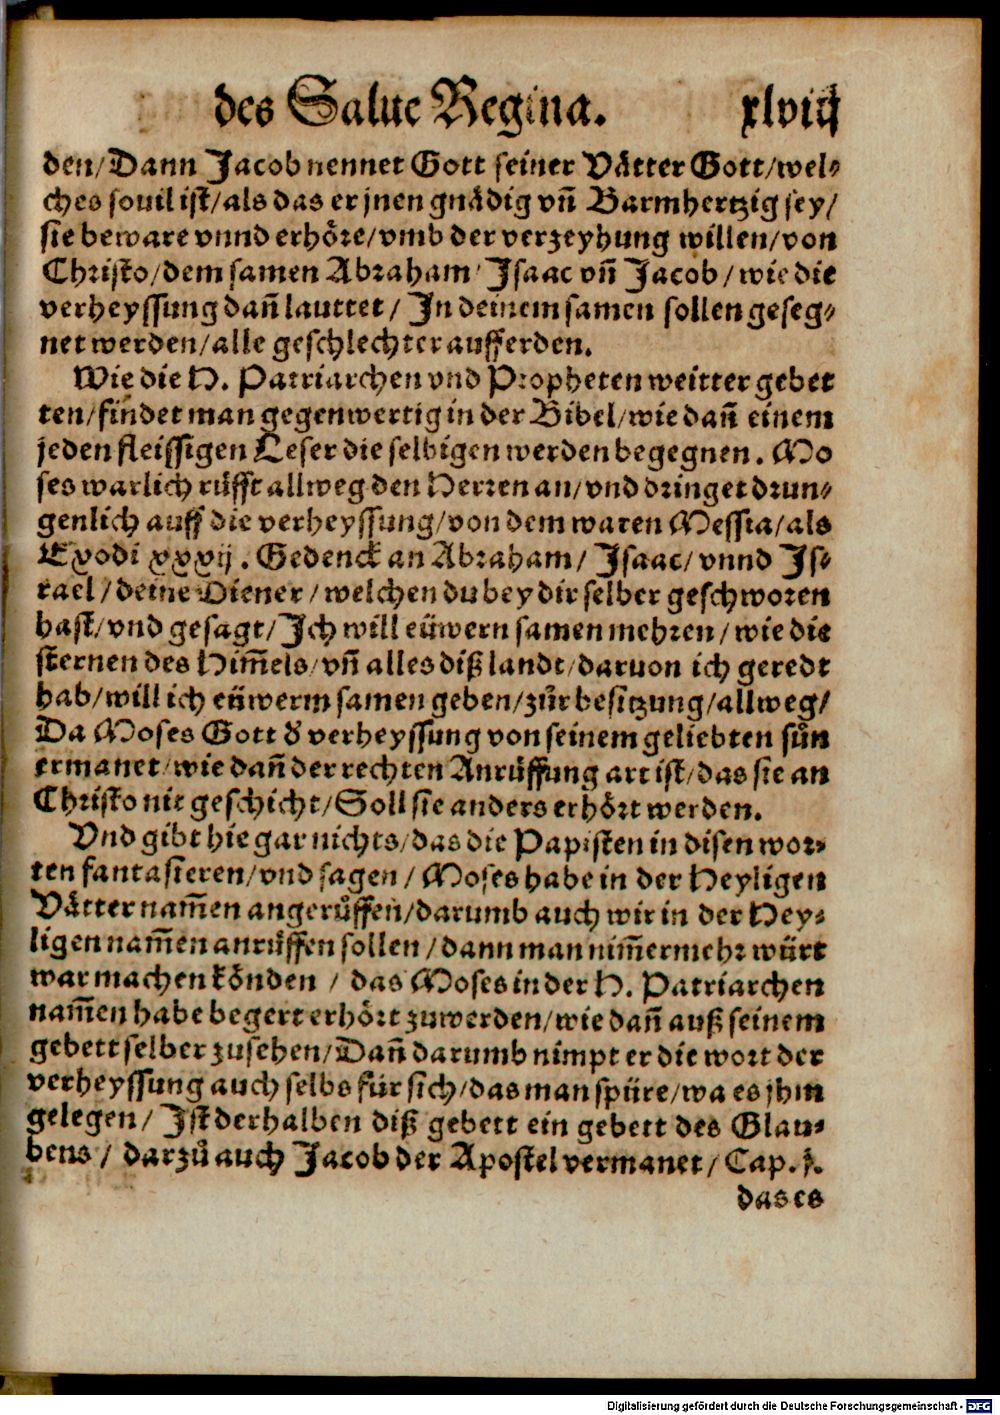 des Salue Regina. xlviij
den/Dann Jacob nennet Gott seiner Våtter Gott/wel⸗
ches souil ist/als das er jnen gnådig vñ Barmhertzig sey/
sie beware vnnd erhôre/vmb der verzeyhung willen/von
Christo/dem samen Abraham/Jsaac vñ Jacob/wie die
verheyssung dañ lauttet/Jn deinem samen sollen geseg⸗
net werden/alle geschlechter aufferden.
Wie die H. Patriarchen vnd Propheten weitter gebet
ten/findet man gegenwertig in der Bibel/wie dañ einem
jeden fleissigen Leser die selbigen werden begegnen. Mo
ses warlich rüfft allweg den Herren an/vnd dringet drun⸗
genlich auff die verheyssung/von dem waren Messia/als
Exodi xxxij. Gedenck an Abraham/Jsaac/vnnd Js⸗
rael/deine Diener/welchen du bey dir selber geschworen
hast/vnd gesagt/Jch will eüwern samen mehren/wie die
sternen des Him̃els/vñ alles diß landt/daruon ich geredt
hab/will ich eüwerm samen geben/zůr besitzung/allweg/
Da Moses Gott d̕ verheyssung von seinem geliebten sůn
ermanet/wie dañ der rechten Anrůffung art ist/das sie an
Christo nit geschicht/Soll sie anders erhôrt werden.
Vnd gibt hie gar nichts/das die Papisten in disen wor⸗
ten fantasieren/vnd sagen/Moses habe in der Heyligen
Våtter nam̃en angerůffen/darumb auch wir in der Hey⸗
ligen nam̃en anrůffen sollen/dann man nim̃ermehr würt
war machen kônden/das Moses in der H. Patriarchen
nam̃en habe begert erhôrt zuwerden/wie dañ auß seinem
gebett selber zusehen/Dañ darumb nimpt er die wort der
verheyssung auch selbs für sich/das man spüre/wa es jhm
gelegen/Jst derhalben diß gebett ein gebett des Glau⸗
bens/darzů auch Jacob der Apostel vermanet/Cap. j.
das es
Digitalisierung gefördert durch die Deutsche Forschungsgemeinschaft - DFG